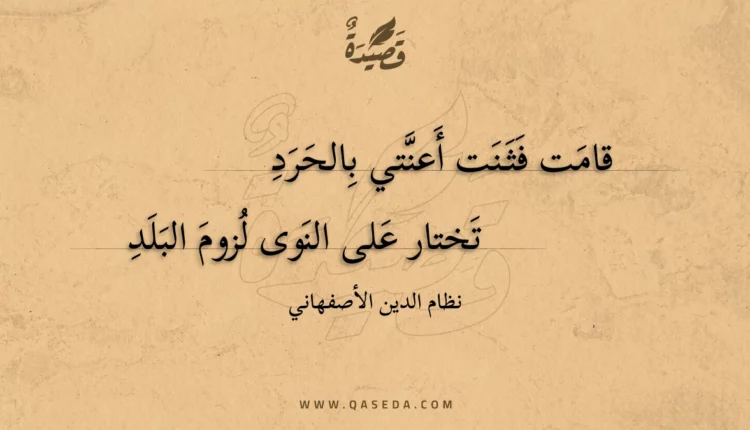 قَصِيدَةٌ
قامَت فَثَنَت أَعنَّتي بِالحَرَدِ
تَختار عَلى النَوى لُزومَ البَلَدِ
نظام الدين الأصفهاني
WWW.QASEDA.COM